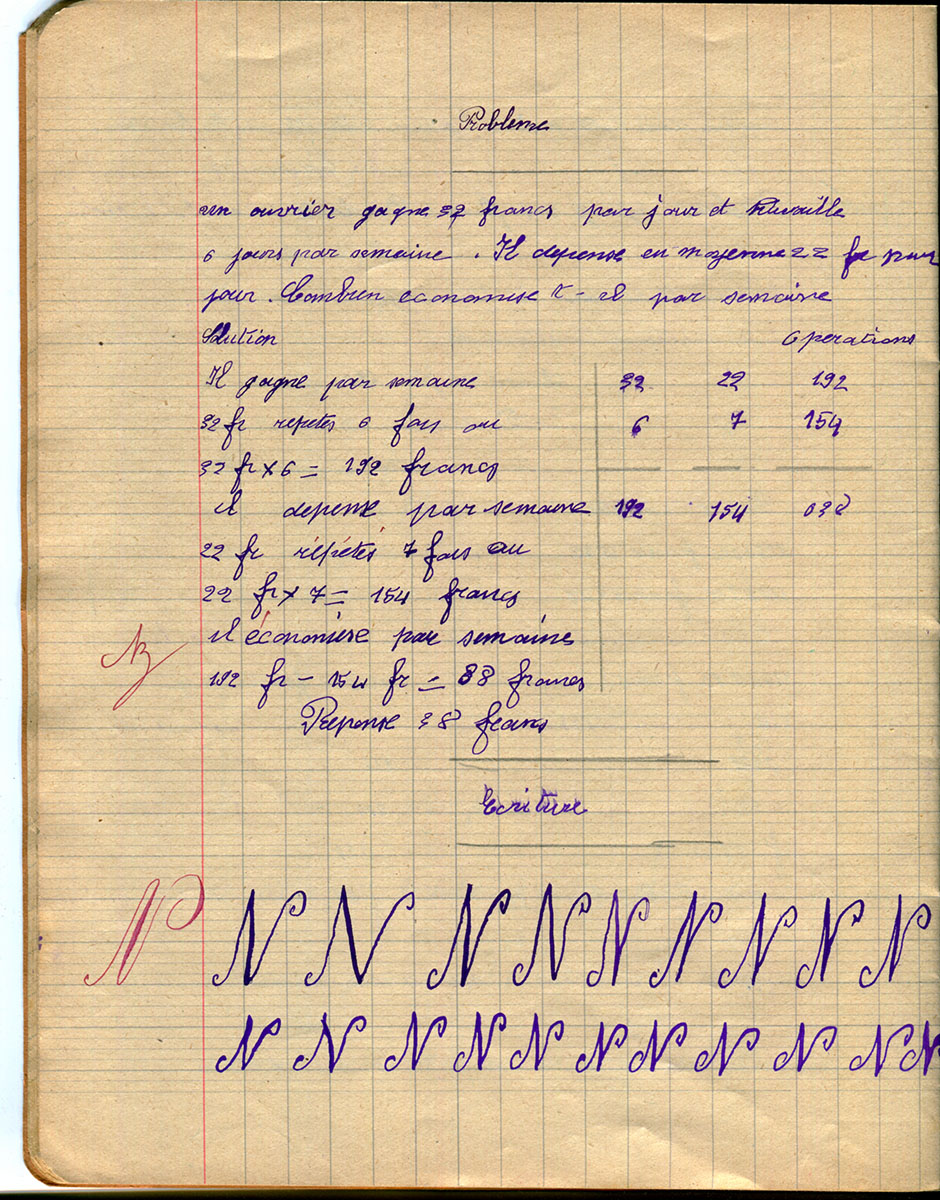 Probleme
un ouvrier gagne 32 francs par jour et travaille
6 jours par semaine . Il depense en moyenne 22 fr par
jour . Combien économise t - il par semaine
Solution Operations
Il gagne par semaine 32 22 192
32 fr repetes 6 fois ou 6 7 154
32 fr x 6 = 192 francs
il depense par semaine 192 154 038
22 fr répétés 7 fois ou
22 fr x 7 = 154 francs
il économise par semaine
192 fr - 154 fr = 38 francs
Reponse 38 francs
Ecriture
N N N N N N N N N N
N N N N N N N N N N N